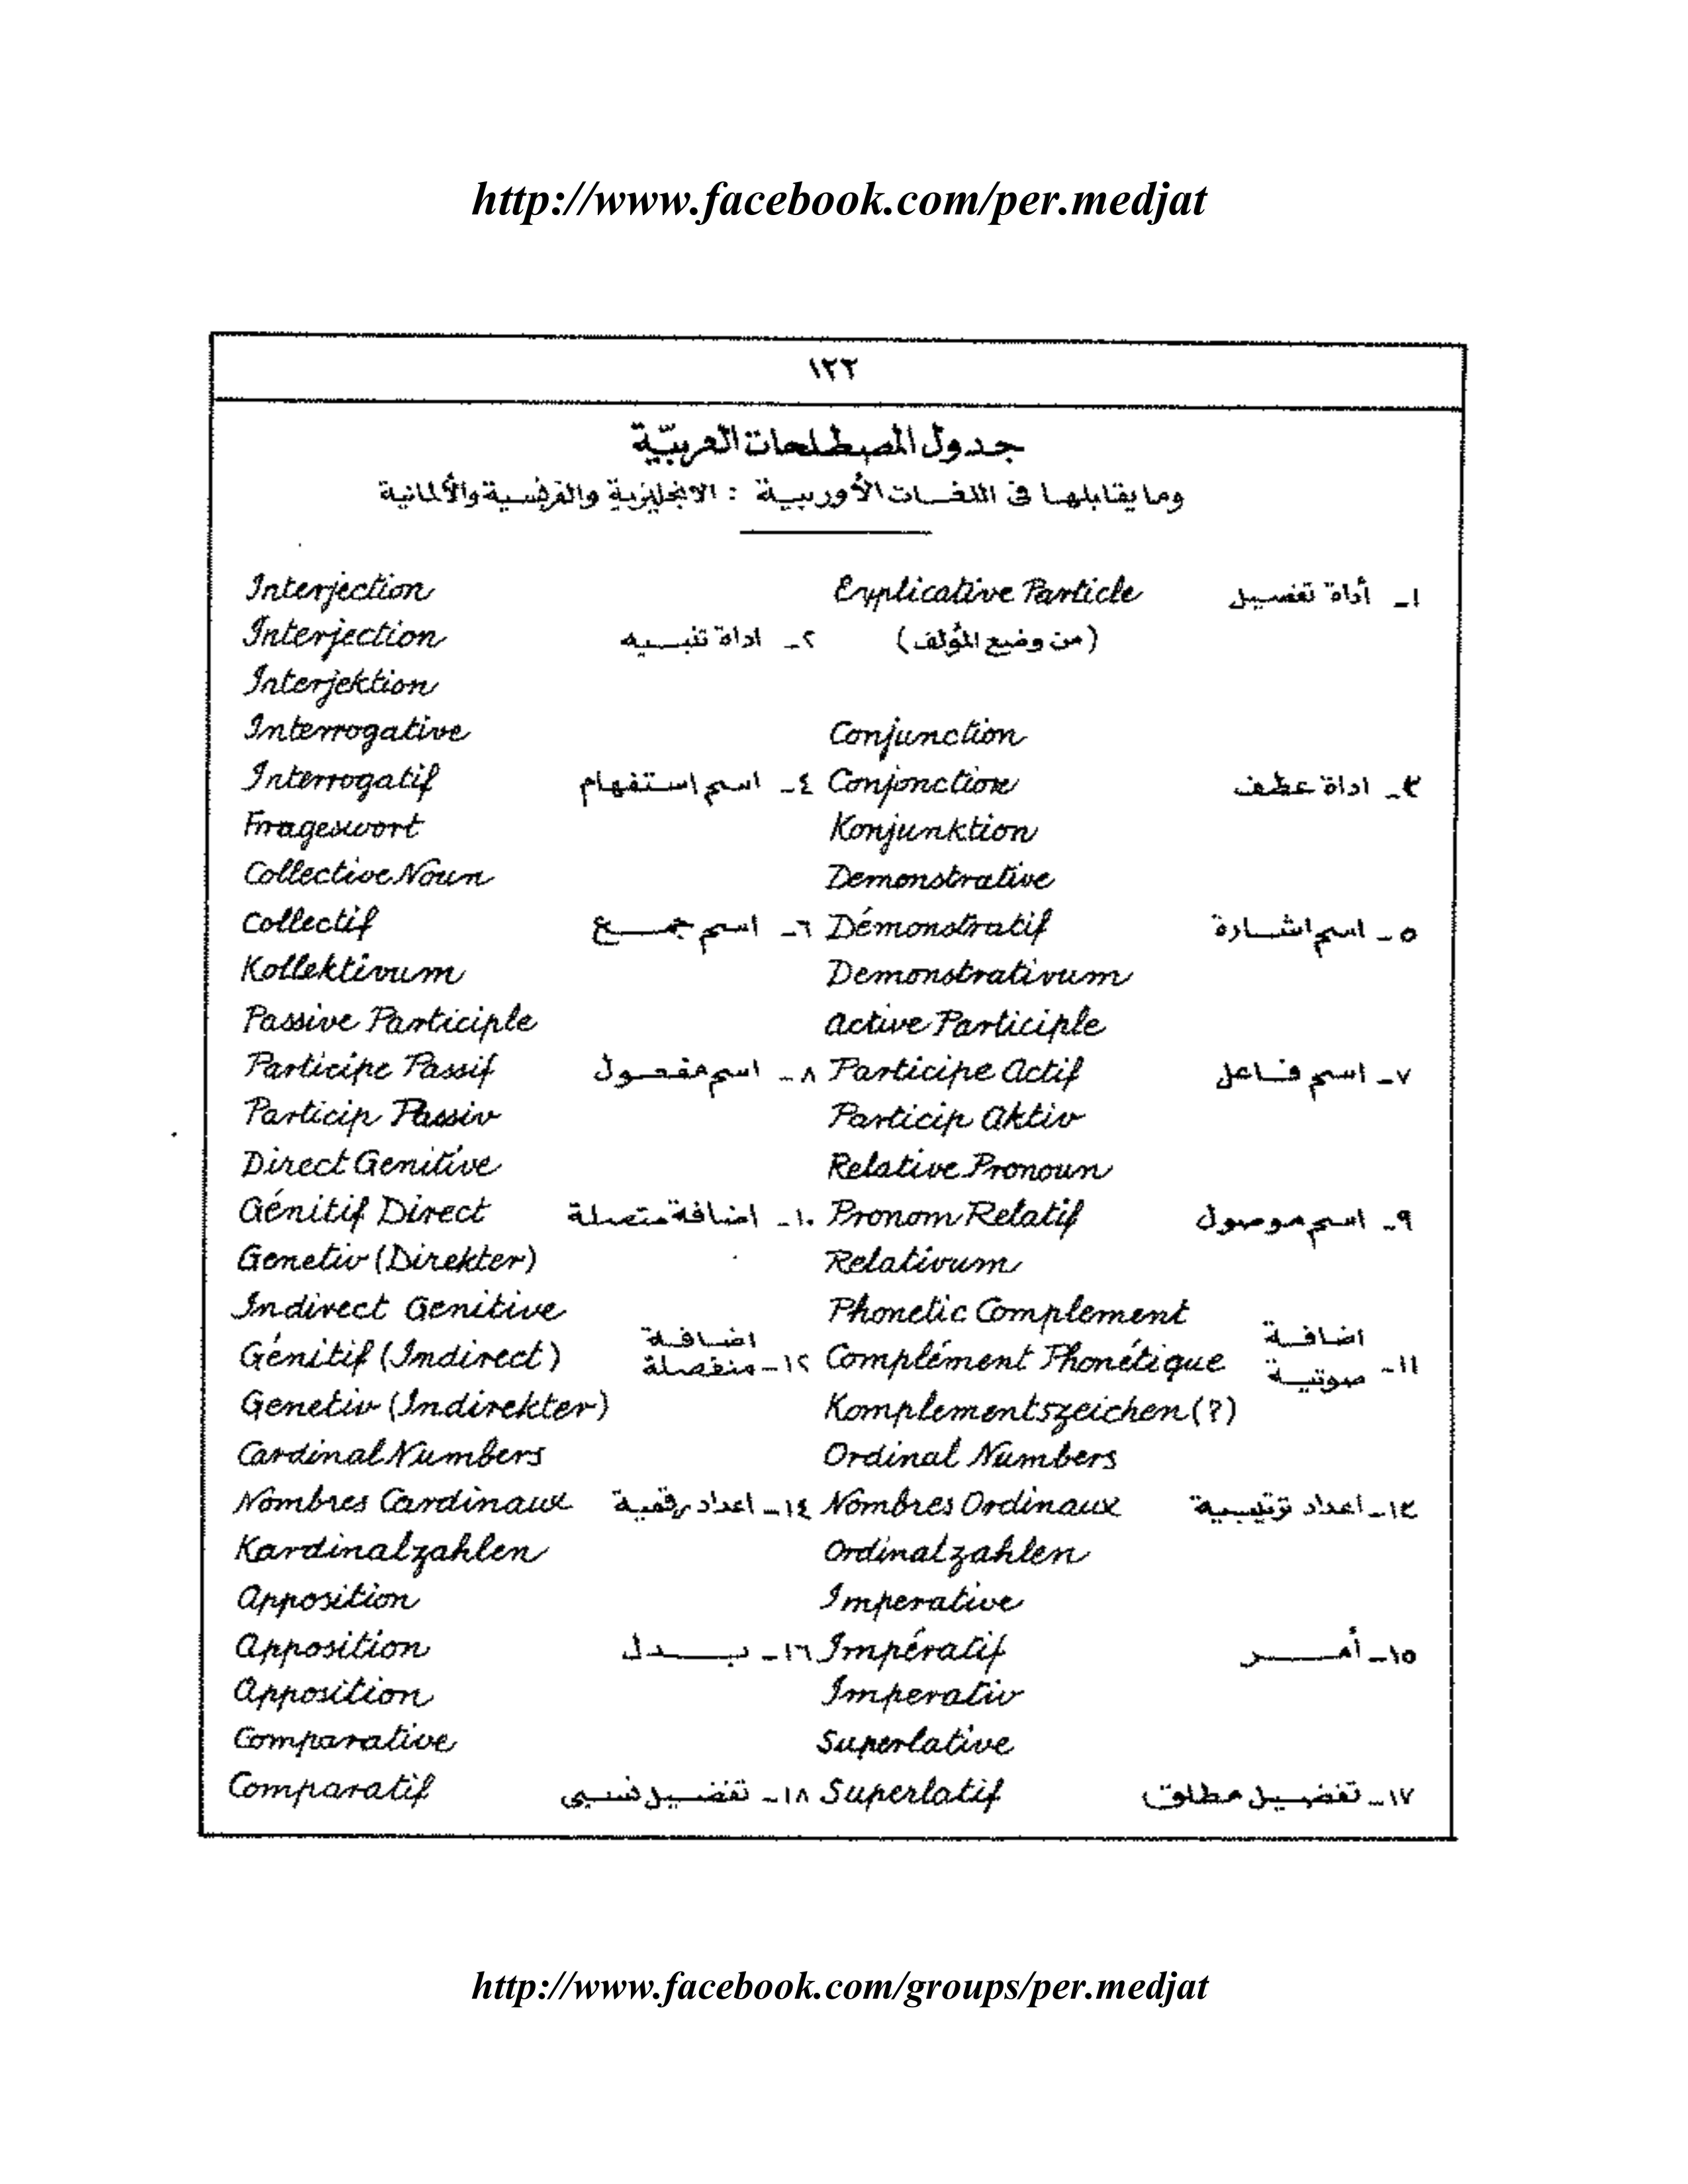 http://www.facebook.com/per.medjat
١٢٢
جدول المصطلحات العربيّة
وما يقابلها فى اللغات الأوربية : الانجليزية والفرنسية والألمانية
١- أداة تفصيل Explicative Particle
(من وضع المؤلف)
٢- اداة تنبيه Interjection
Interjection
Interjektion
٣- اداة عطف Conjunction
Conjonction
Konjunktion
٤- اسم استفهام Interrogative
Interrogatif
Fragewort
٥- اسم اشارة Demonstrative
Démonstratif
Demonstrativum
٦- اسم جمع Collective Noun
Collectif
Kollektivum
٧- اسم فاعل Active Participle
Participe Actif
Particip Aktiv
٨- اسم مفعول Passive Participle
Participe Passif
Particip Passiv
٩- اسم موصول Relative Pronoun
Pronom Relatif
Relativum
١٠- اضافة متصلة Direct Genitive
Génitif Direct
Genetiv (Direkter)
١١- اضافة صوتية Phonetic Complement
Complément Phonétique
Komplementszeichen (?)
١٢- اضافة منفصلة Indirect Genitive
Génitif (Indirect)
Genetiv (Indirekter)
١٣- أعداد ترتيبية Ordinal Numbers
Nombres Ordinaux
Ordinalzahlen
١٤- اعداد رقمية Cardinal Numbers
Nombres Cardinaux
Kardinalzahlen
١٥- أمر Imperative
Impératif
Imperativ
١٦- بدل Apposition
Apposition
Apposition
١٧- تفضيل مطلق Superlative
Superlatif
١٨- تفضيل نسبى Comparative
Comparatif
http://www.facebook.com/groups/per.medjat